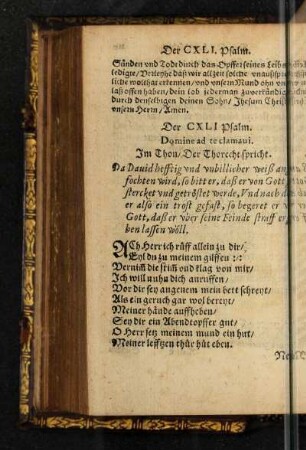 Der CXLI. Psalm.
Sünden vnd Todt durch das Opffer seines Leibs
ledigte, Verleyhe daß wir allzeit solche vnaußsprech
liche wolthat erkennen, vnd vnsern Mund ohn vnter
laß offen haben, dein lob jederman zuverkündig
durch denselbigen deinen Sohn, Jhesum Christ
vnsern Herrn, Amen.
Der CXLI Psalm.
Domine ad te clamaui.
Im Thon, Der Thorecht spricht.
Da Dauid hefftig vnd vnbillicher weiß ange
fochten wird, so bitt er, daß er von Gott
stercket vnd getröstet werde, Vnd nach de
er also ein trost gefast, so begeret er v
Gott, daß er vber seine Feinde straff er
ben lassen wöll.
ACh Herr ich rüff allein zu dir,
Eyl du zu meinem gilffen :,:
Vernim̃ die stim̃ vnd klag von mir,
Ich will nuhn dich anruffen,
Vor dir sey angenem mein bett schreyt,
Als ein geruch gar wol bereyt,
Meiner hände auffheben,
Sey dir ein Abendtopffer gut,
O Herr setz meinem mund ein hut,
Meiner lefftzen thür hüt eben.